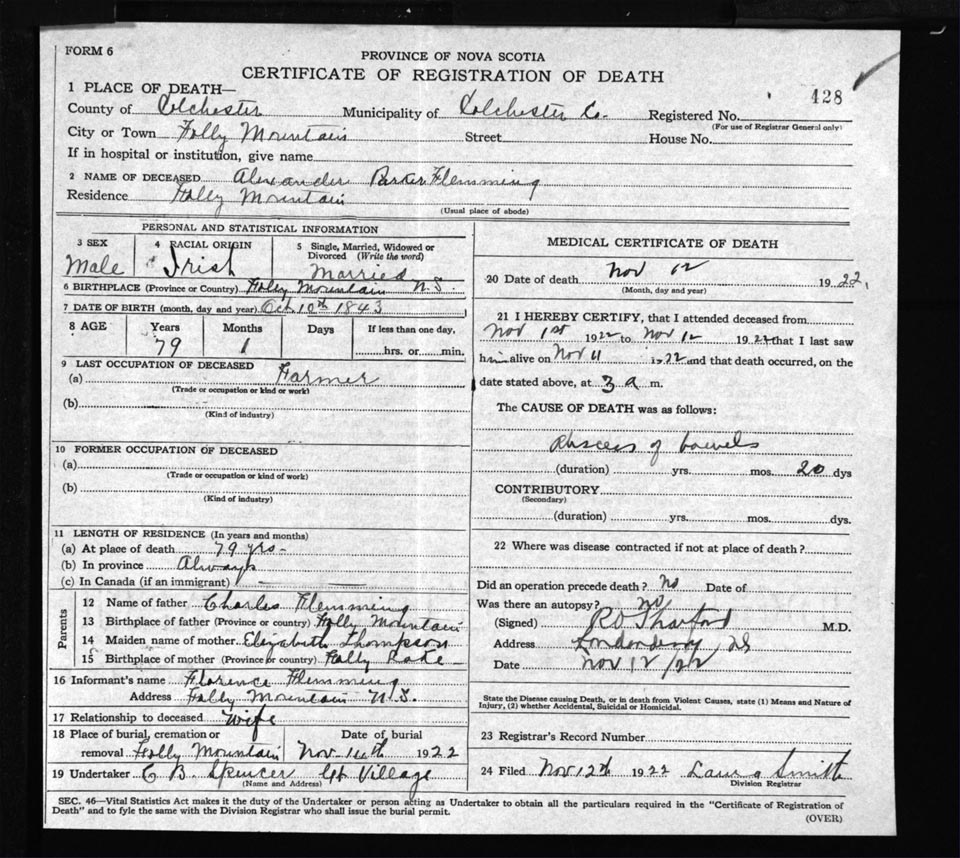 FORM 6
PROVINCE OF NOVA SCOTIA
CERTIFICATE OF REGISTRATION OF DEATH
428
1 PLACE OF DEATH—
County of Colchester Municipality of Colchester Co. Registered No.
(For use of Registrar General only)
City or Town Folly Mountain Street House No.
If in hospital or institution, give name
2 NAME OF DECEASED Alexander Parker Flemming
Residence Folly Mountain
(Usual place of abode)
PERSONAL AND STATISTICAL INFORMATION
3 SEX Male
4 RACIAL ORIGIN Irish
5 Single, Married, Widowed or Divorced (Write the word) Married
6 BIRTHPLACE (Province or Country) Folly Mountain N.S.
7 DATE OF BIRTH (month, day and year) Oct 10th 1843
8 AGE Years Months Days If less than one day,
79 1 hrs. or min.
9 LAST OCCUPATION OF DECEASED
(a) Farmer
(Trade or occupation or kind or work)
(b)
(Kind of industry)
10 FORMER OCCUPATION OF DECEASED
(a)
(Trade or occupation or kind of work)
(b)
(Kind of industry)
11 LENGTH OF RESIDENCE (In years and months)
(a) At place of death 79 yrs-
(b) In province Always
(c) In Canada (if an immigrant)
Parents
12 Name of father Charles Flemming
13 Birthplace of father (Province or country) Folly Mountain
14 Maiden name of mother Elizabeth Thompson
15 Birthplace of mother (Province or country) Folly Lake
16 Informant's name Florence Flemming
Address Folly Mountain N.S.
17 Relationship to deceased Wife
18 Place of burial, cremation or removal Folly Mountain
Date of burial Nov 14th 1922
19 Undertaker C B. Spencer Gt. Village
(Name and Address)
MEDICAL CERTIFICATE OF DEATH
20 Date of death Nov 12 1922.
(Month, day and year)
21 I HEREBY CERTIFY, that I attended deceased from
Nov 1st 1922 to Nov 12 1922 that I last saw
him alive on Nov 11 1922 and that death occurred, on the
date stated above, at 3 a m.
The CAUSE OF DEATH was as follows:
Abscess of bowels
(duration) yrs. mos. 20 dys
CONTRIBUTORY
(Secondary)
(duration) yrs. mos. dys.
22 Where was disease contracted if not at place of death?
Did an operation precede death? No Date of
Was there an autopsy? no
(Signed) M.D.
Address Londonderry, NS
Date Nov 12/22
State the Disease causing Death, or in death from Violent Causes, state (1) Means and Nature of
Injury, (2) whether Accidental, Suicidal or Homicidal.
23 Registrar's Record Number
24 Filed Nov 12th 1922 Laura Smith
Division Registrar
SEC. 46—Vital Statistics Act makes it the duty of the Undertaker or person acting as Undertaker to obtain all the particulars required in the "Certificate of Registration of
Death" and to fyle the same with the Division Registrar who shall issue the burial permit.
(OVER)